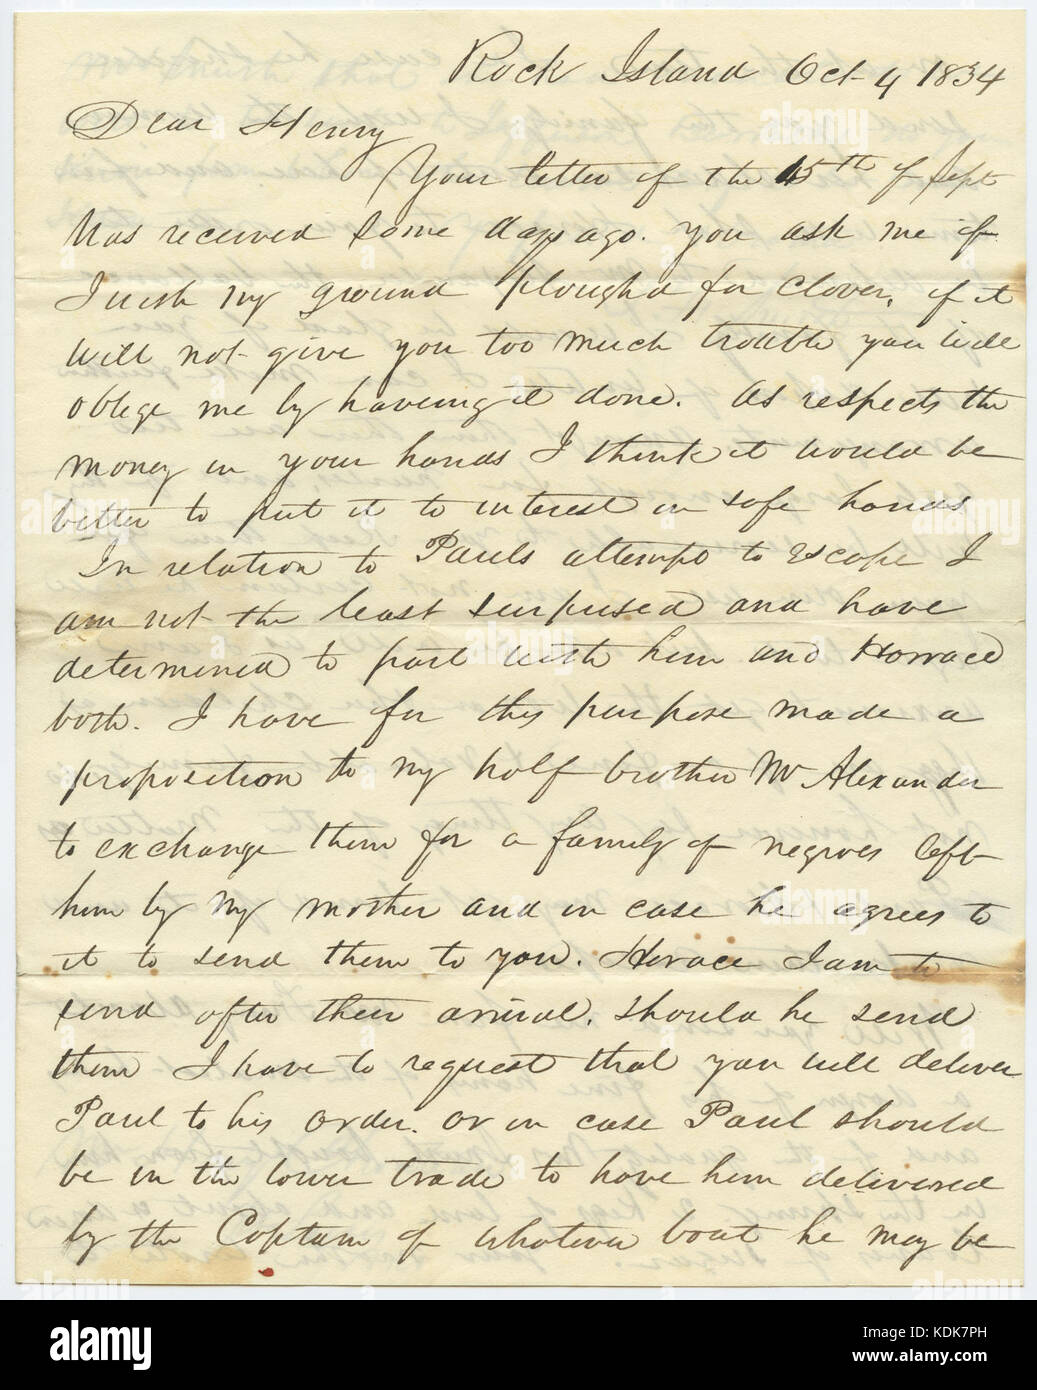 Rock Island Oct 4 1834
Dear Henry
Your letter of the 15th of Sept
was received some days ago. you ask me if
I wish my ground ploughd for clover, if it
will not give you too much trouble you will
oblege me by haveing it done. As respects the
money in your hands I think it would be
better to put it to interest in safe hands
In relation to Pauls attempt to escape I
am not the least surprised and have
determined to part with him and Horrace
both. I have for this purpose made a
proposition to my half brother Mr Alexander
to exchange them for a family of negroes left
him by my mother and in case he agrees to
it to send them to you. Horace I am to
send after their arrival. should he send
them I have to request that you will deliver
Paul to his order. or in case Paul should
be in the lower trade to have him delivered
by the Captain of whatever boat he may be
alamy
Image ID: KDK7PH
www.alamy.com